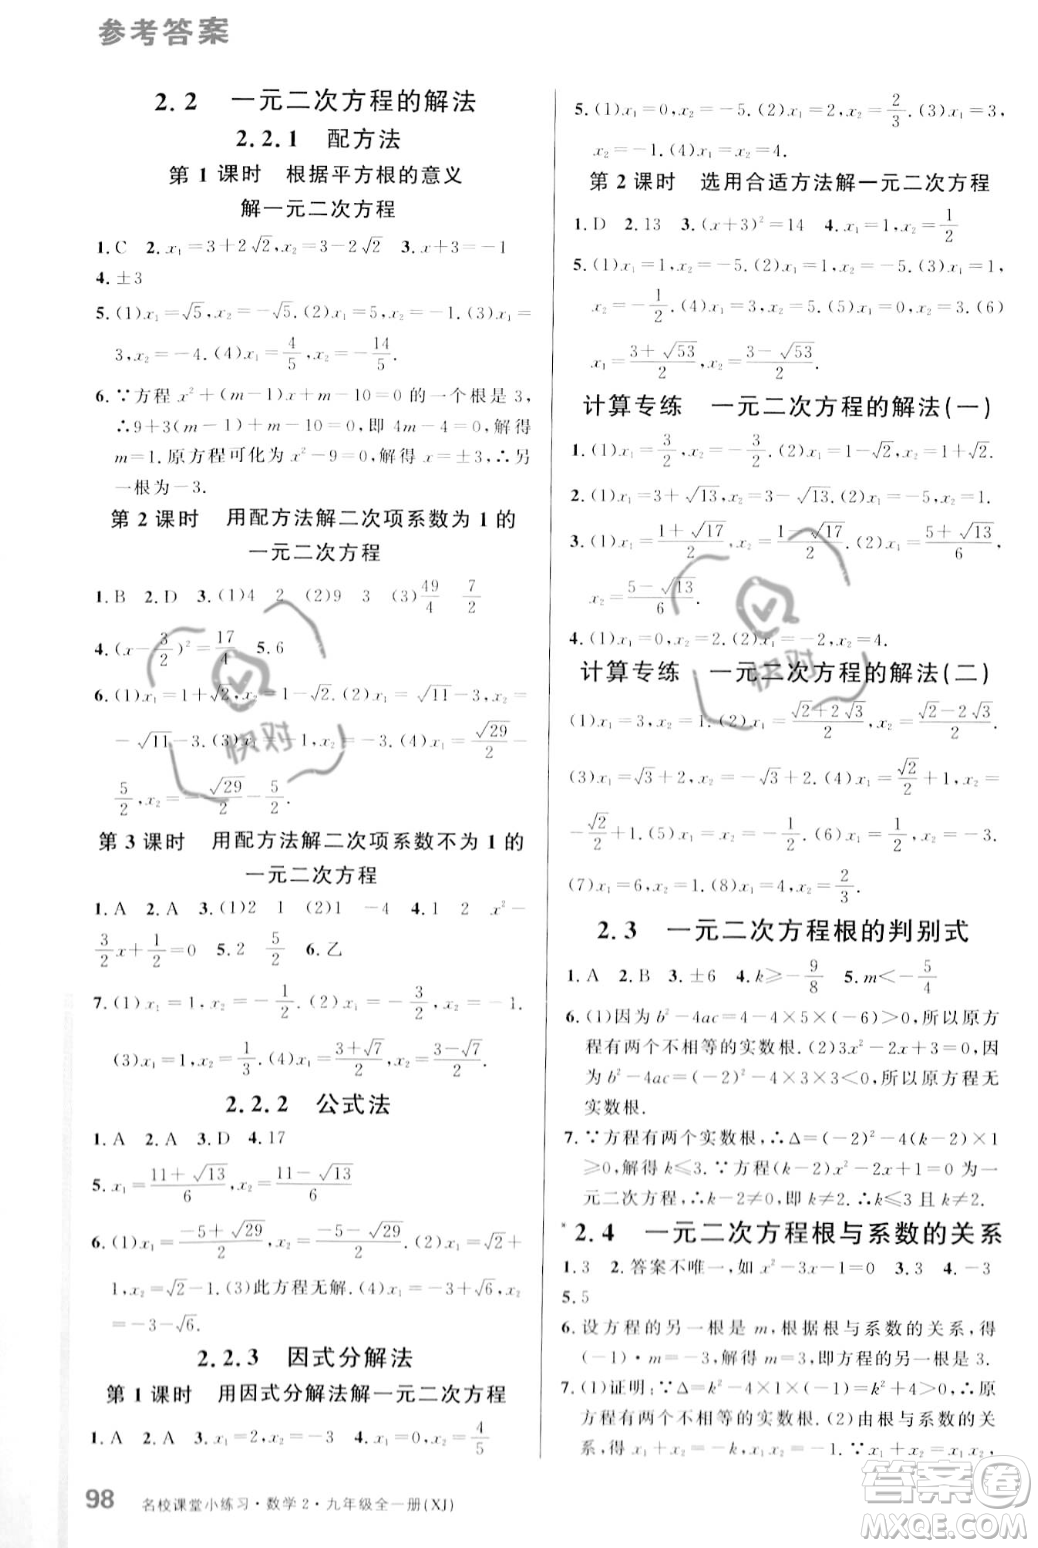 参考答案
2.2 一元二次方程的解法
2.2.1 配方法
第1课时 根据平方根的意义
解一元二次方程
1.C 2.x₁=3+2√2,x₂=3-2√2 3.x+3=-1
4.±3
5.(1)x₁=√5,x₂=-√5.(2)x₁=0,x₂=-1.(3)x₁=
3,x₂=-4.(4)x₁=4/5,x₂=-14/5.
6.∵方程 x²+(m-1)x+m-10=0 的一个根是 3,
∴9+3(m-1)+m-10=0,即 4m-4=0,解得
m=1.原方程可化为 x²-9=0,解得 x=±3,∴另
一根为-3.
第2课时 用配方法解二次项系数为1的
一元二次方程
1.B 2.D 3.(1)4 2 (2)9 3 (3)49/4 7/2
4.(x-3/2)²=17/4 5.6
6.(1)x₁=1+√2,x₂=1-√2.(2)x₁=√11-3,x₂=
-√11-3.(3)x₁=-1,x₂=-3.(4)x₁=√29/2-
5/2,x₂=-√29/2-5/2.
第3课时 用配方法解二次项系数不为1的
一元二次方程
1.A 2.A 3.(1)2 1 (2)1 -4 4.1 2 x²-
3/2x+1/2=0 5.2 6.乙
7.(1)x₁=1,x₂=-1/2.(2)x₁=-3/2,x₂=-1.
(3)x₁=1,x₂=1/3.(4)x₁=(3+√7)/2,x₂=(3-√7)/2.
2.2.2 公式法
1.A 2.A 3.D 4.17
5.x₁=(11+√13)/6,x₂=(11-√13)/6
6.(1)x₁=(-5+√29)/2,x₂=(-5-√29)/2.(2)x₁=√2+
1,x₂=√2-1.(3)此方程无解.(4)x₁=-3+√6,x₂=
-3-√6.
2.2.3 因式分解法
第1课时 用因式分解法解一元二次方程
1.A 2.A 3.x₁=2,x₂=3 4.x₁=0,x₂=4/5
98 名校课堂小练习·数学2·九年级全一册(XJ)
5.(1)x₁=0,x₂=-5.(2)x₁=2,x₂=2/3.(3)x₁=3,
x₂=-1.(4)x₁=-3,x₂=4.
第2课时 选用合适方法解一元二次方程
1.D 2.13 3.(x+3)²=14 4.x₁=1,x₂=1/2
5.(1)x₁=1,x₂=-5.(2)x₁=0,x₂=1.(3)x₁=1,
x₂=-1/2.(4)x₁=2,x₂=-5.(5)x₁=0,x₂=3.(6)
x₁=(3+√53)/2,x₂=(3-√53)/2.
计算专练 一元二次方程的解法(一)
1.(1)x₁=3/2,x₂=-3/2.(2)x₁=1+√2,x₂=1-√2.
2.(1)x₁=3+√13,x₂=3-√13.(2)x₁=x₂=1.
3.(1)x₁=(1+√17)/2,x₂=(1-√17)/2.(2)x₁=(5+√13)/6,
x₂=(5-√13)/6.
4.(1)x₁=0,x₂=4.(2)x₁=-2,x₂=4.
计算专练 一元二次方程的解法(二)
(1)x₁=3,x₂=1.(2)x₁=(√2+2√3)/2,x₂=(√2-2√3)/2.
(3)x₁=√3+2,x₂=-√3+2.(4)x₁=√2/2+1,x₂=
-√2/2+1.(5)x₁=2,x₂=-1/2.(6)x₁=1,x₂=-3.
(7)x₁=6,x₂=1.(8)x₁=4,x₂=2/3.
2.3 一元二次方程根的判别式
1.A 2.B 3.±6 4.k≥-9/8 5.m<-5/4
6.(1)因为 b²-4ac=4-4×5×(-6)>0,所以原方
程有两个不相等的实数根.(2)3x²-2x+3=0,因
为 b²-4ac=4-4×3×3<0,所以原方程无
实数根.
7.∵方程有两个实数根,∴Δ=(-2)²-4(k-2)×1
≥0,解得 k≤3.∵方程(k-2)x²-2x+1=0 是一
元二次方程,∴k-2≠0,即 k≠2.∴k≤3 且 k≠2.
2.4 一元二次方程根与系数的关系
1.3 2.答案不唯一,如 x²-3x-1=0 3.3 4.-3
5.5
6.设方程的另一根是 m,根据根与系数的关系,得
(-1)·m=-3,解得 m=3,即方程的另一根是 3.